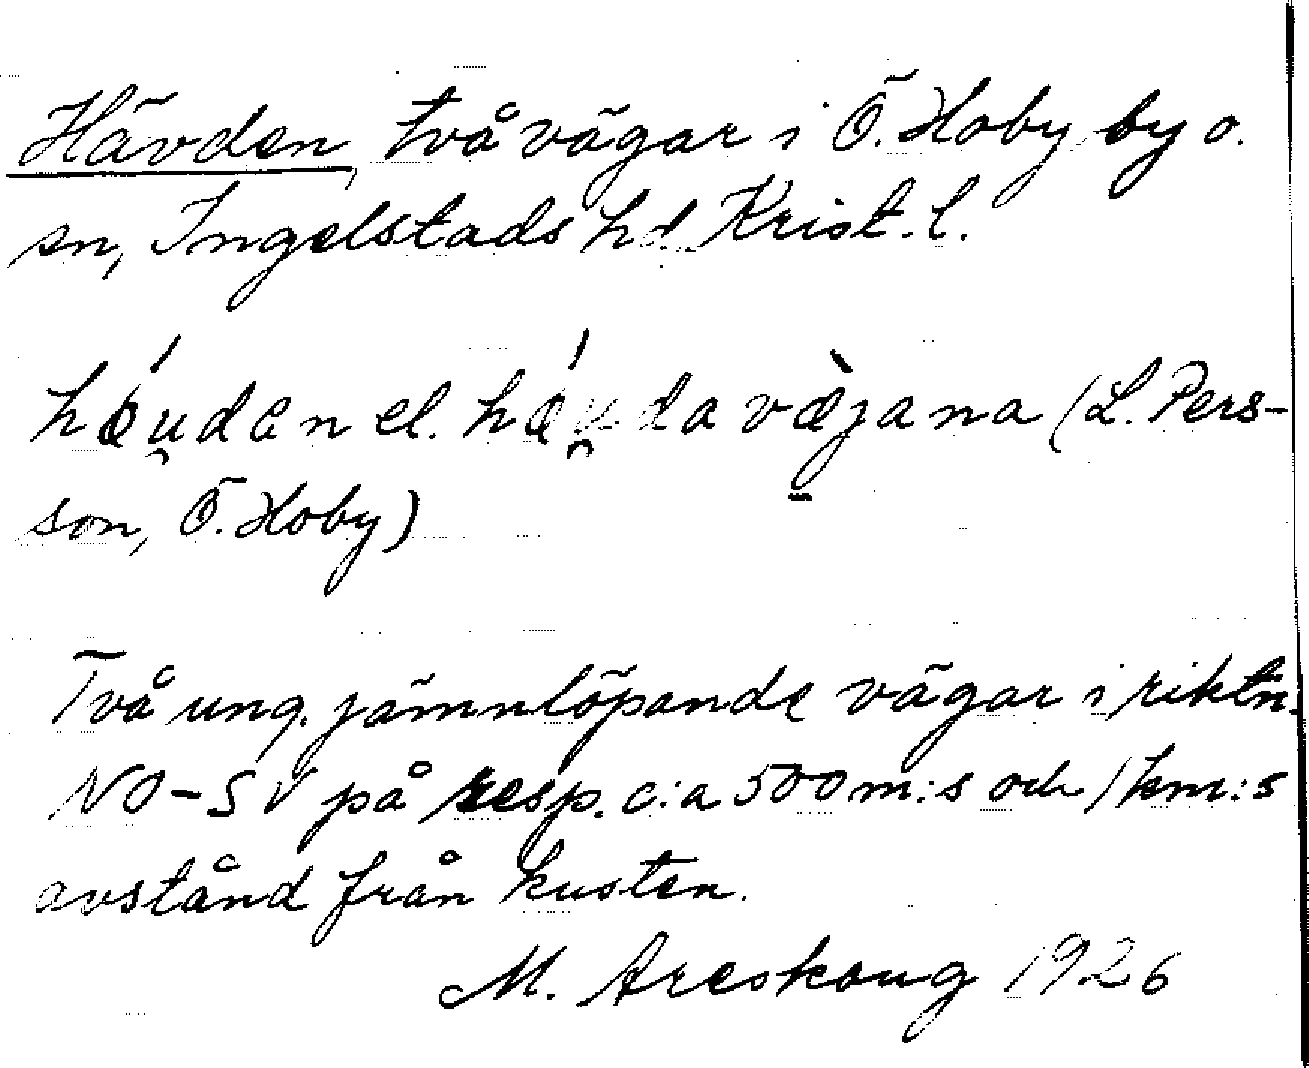 Hävden, två vägar i Ö. Hoby by o.
sn, Ingelstads hd Krist. l.
hǿu̯dan el. hǿu̯da væ̀jana (L. Pers-
son, Ö. Hoby)
Två ung. jämnlöpande vägar i riktn.
NO-SV på resp. c:a 500 m:s och 1 km:s
avstånd från kusten.
M. Areskoug 1926